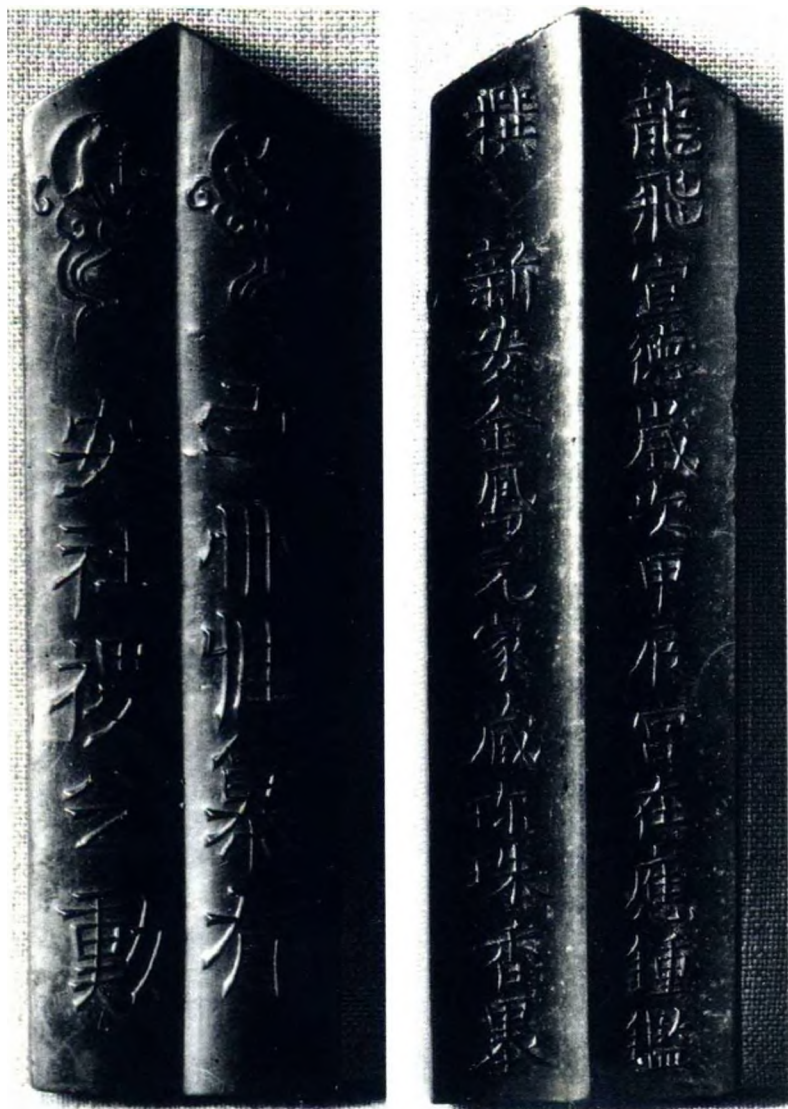 龍飛宣德歲次甲辰宮在應鍾鑑
撰 新安金鳳元家藏珎珠香果
安社稷之勳